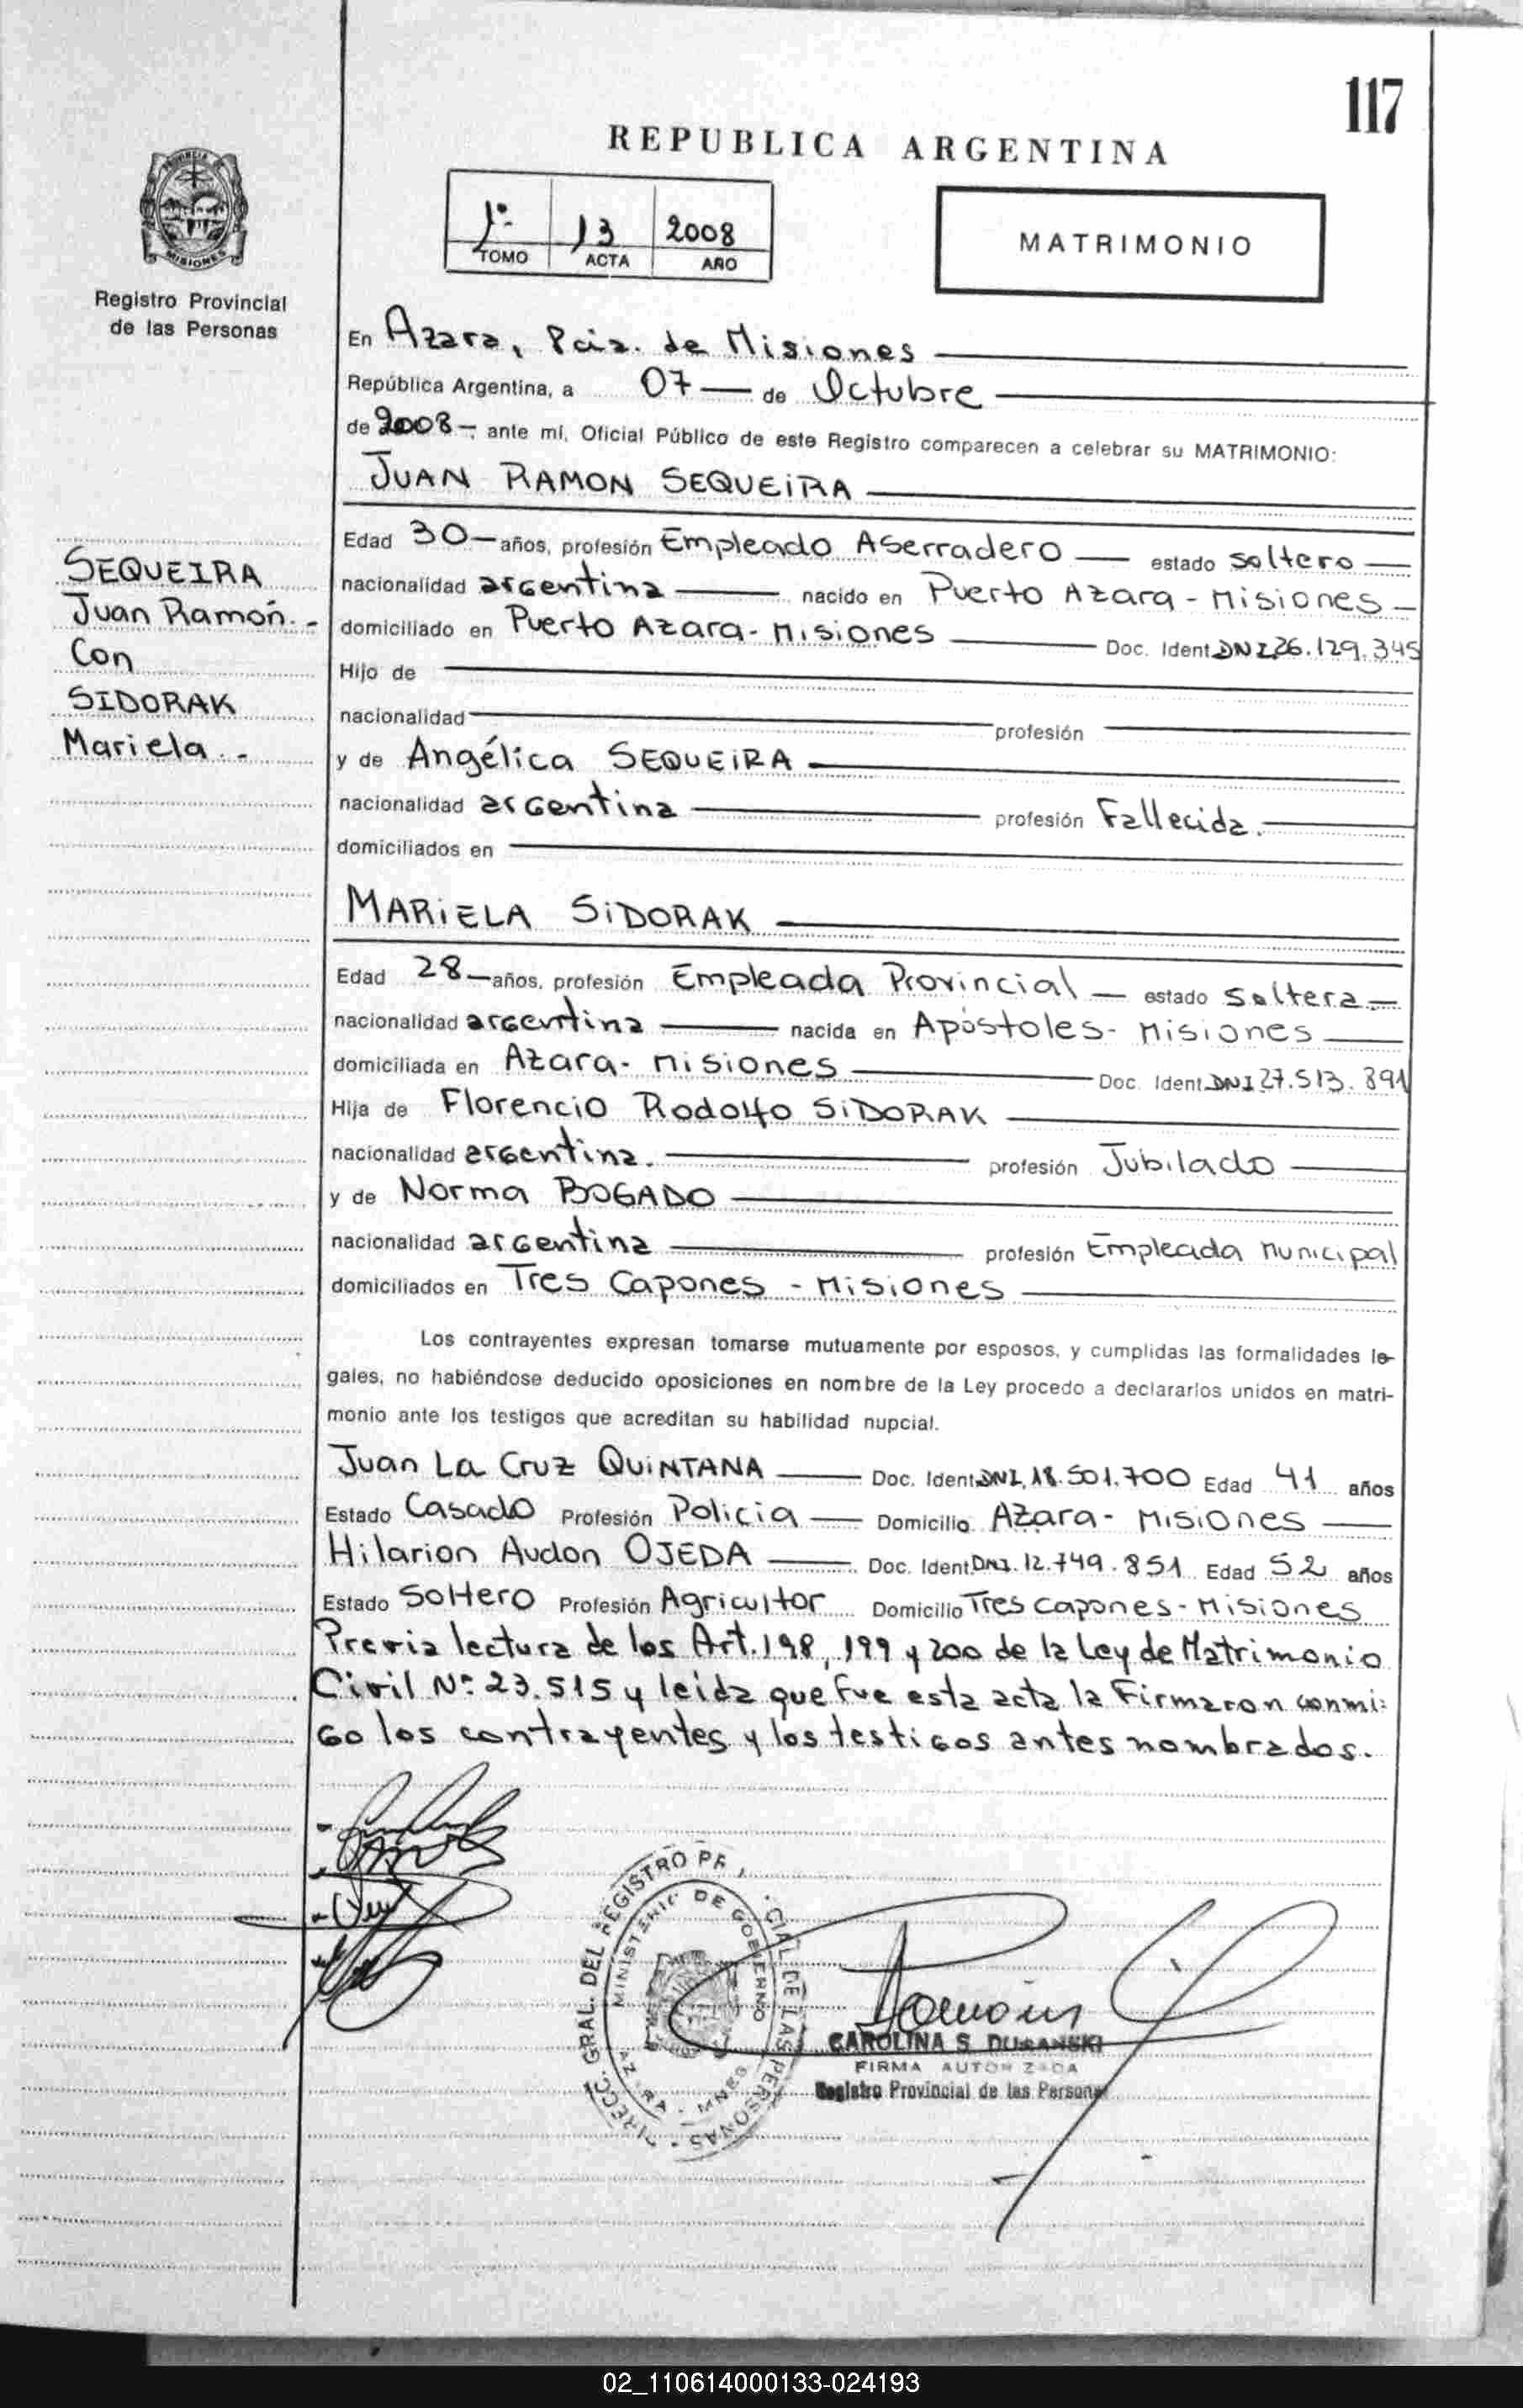 117
REPUBLICA ARGENTINA
PROVINCIA DE
MISIONES
Registro Provincial
de las Personas
1º 13 2008
TOMO ACTA AÑO
MATRIMONIO
En Azara, Pcia. de Misiones
República Argentina, a 07 de Octubre
de 2008, ante mí, Oficial Público de este Registro comparecen a celebrar su MATRIMONIO:
JUAN RAMON SEQUEiRA
SEQUEIRA
Juan Ramón.-
Con
SIDORAK
Mariela.-
Edad 30 años, profesión Empleado Aserradero estado soltero
nacionalidad argentina nacido en Puerto Azara - Misiones
domiciliado en Puerto Azara - Misiones Doc. Ident DNI 26.129.345
Hijo de
nacionalidad profesión
y de Angélica SEQUEiRA
nacionalidad argentina profesión Fallecida.
domiciliados en
MARiELA SiDORAK
Edad 28 años, profesión Empleada Provincial estado Soltera
nacionalidad argentina nacida en Apóstoles - Misiones
domiciliada en Azara - Misiones Doc. Ident DNI 27.513.891
Hija de Florencio Rodolfo SiDORAK
nacionalidad argentina. profesión Jubilado
y de Norma BOGADO
nacionalidad argentina profesión Empleada Municipal
domiciliados en Tres Capones - Misiones
Los contrayentes expresan tomarse mutuamente por esposos, y cumplidas las formalidades le-
gales, no habiéndose deducido oposiciones en nombre de la Ley procedo a declararlos unidos en matri-
monio ante los testigos que acreditan su habilidad nupcial.
Juan La Cruz QUiNTANA Doc. Ident DNI. 18.501.700 Edad 41 años
Estado Casado Profesión Policia Domicilio Azara - Misiones
Hilarion Audon OJEDA Doc. Ident. DNI. 12.749.851 Edad 52 años
Estado Soltero Profesión Agricultor Domicilio Tres capones - Misiones
Previa lectura de los Art. 198, 199 y 200 de la Ley de Matrimonio
Civil Nº 23.515 y leida que fue esta acta la Firmaron conmi-
go los contrayentes y los testigos antes nombrados.
DIRECC. GRAL. DEL REGISTRO PR CIAL DE LAS PERSONAS
MINISTERIO DE GOBIERNO
CAROLINA S. DUSANSKI
FIRMA AUTORIZADA
Registro Provincial de las Personas
02_110614000133-024193